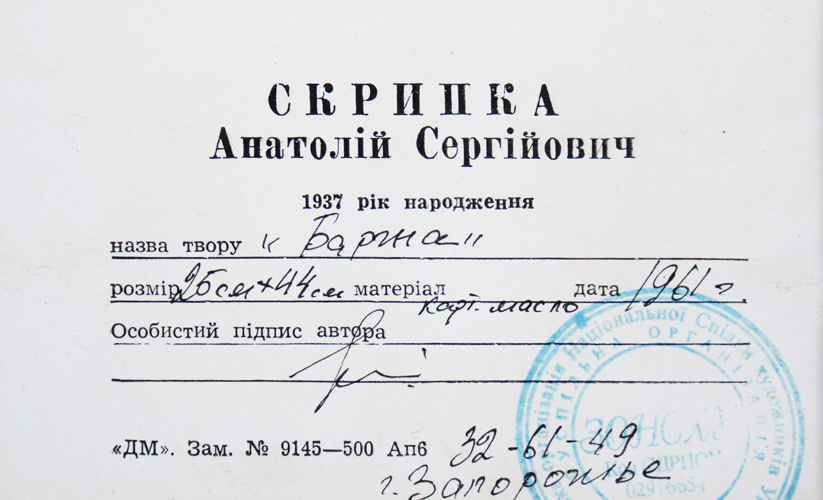 СКРИПКА
Анатолій Сергійович
1937 рік народження
назва твору „Баржа"
розмір 25см×44см матеріал карт. масло дата 1961 г.
Особистий підпис автора
«ДМ». Зам. № 9145—500 Апб 32-61-49
г. Запорожье
організацій Національної Спілки художників
СПІЛЬНА ОРГАНІЗАЦІЯ
ЗОНСХУ
Код ЄДРПОУ